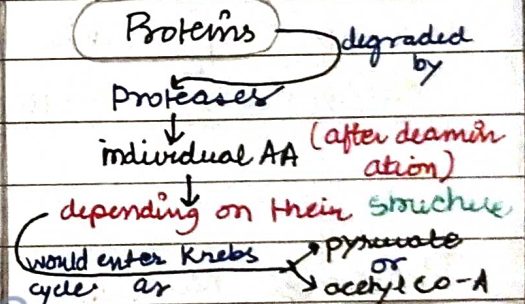 Proteins
degraded
by
Proteases
individual AA (after deamin
ation)
depending on their structure
would enter Krebs
cycle as
pyruvate
or
acetyl CO-A